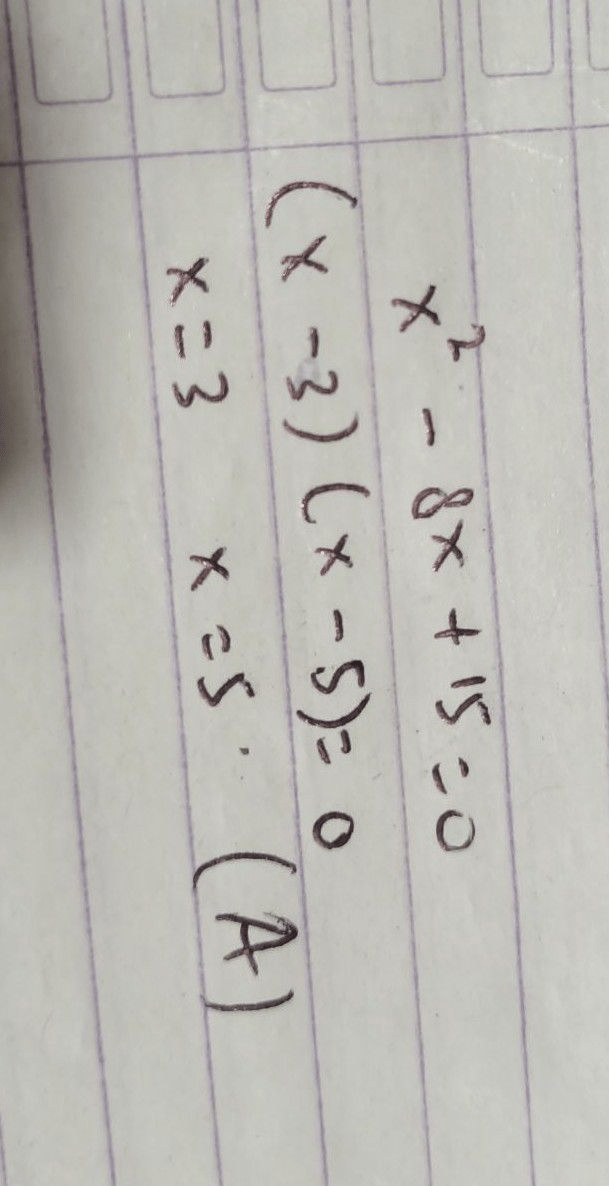 x² - 8x + 15 = 0
(x - 3) (x - 5) = 0
x = 3 x = 5 . (A)